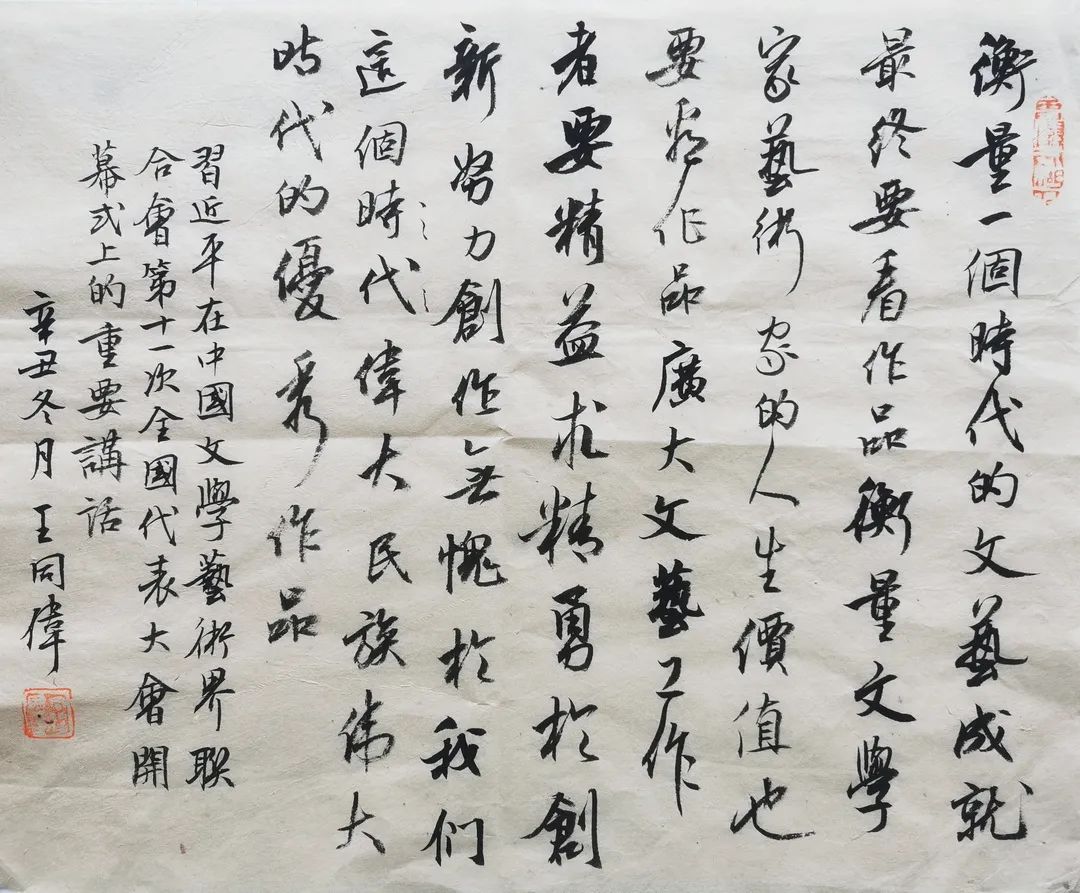 衡量一個時代的文藝成就
最终要看作品衡量文學
家藝術家的人生價值也
要看作品廣大文藝工作
者要精益求精勇於創
新努力創作無愧於我们
這個時代偉大民族偉大
時代的優秀作品
習近平在中國文學藝術界聯
合會第十一次全國代表大會開
幕式上的重要講話
辛丑冬月王同偉